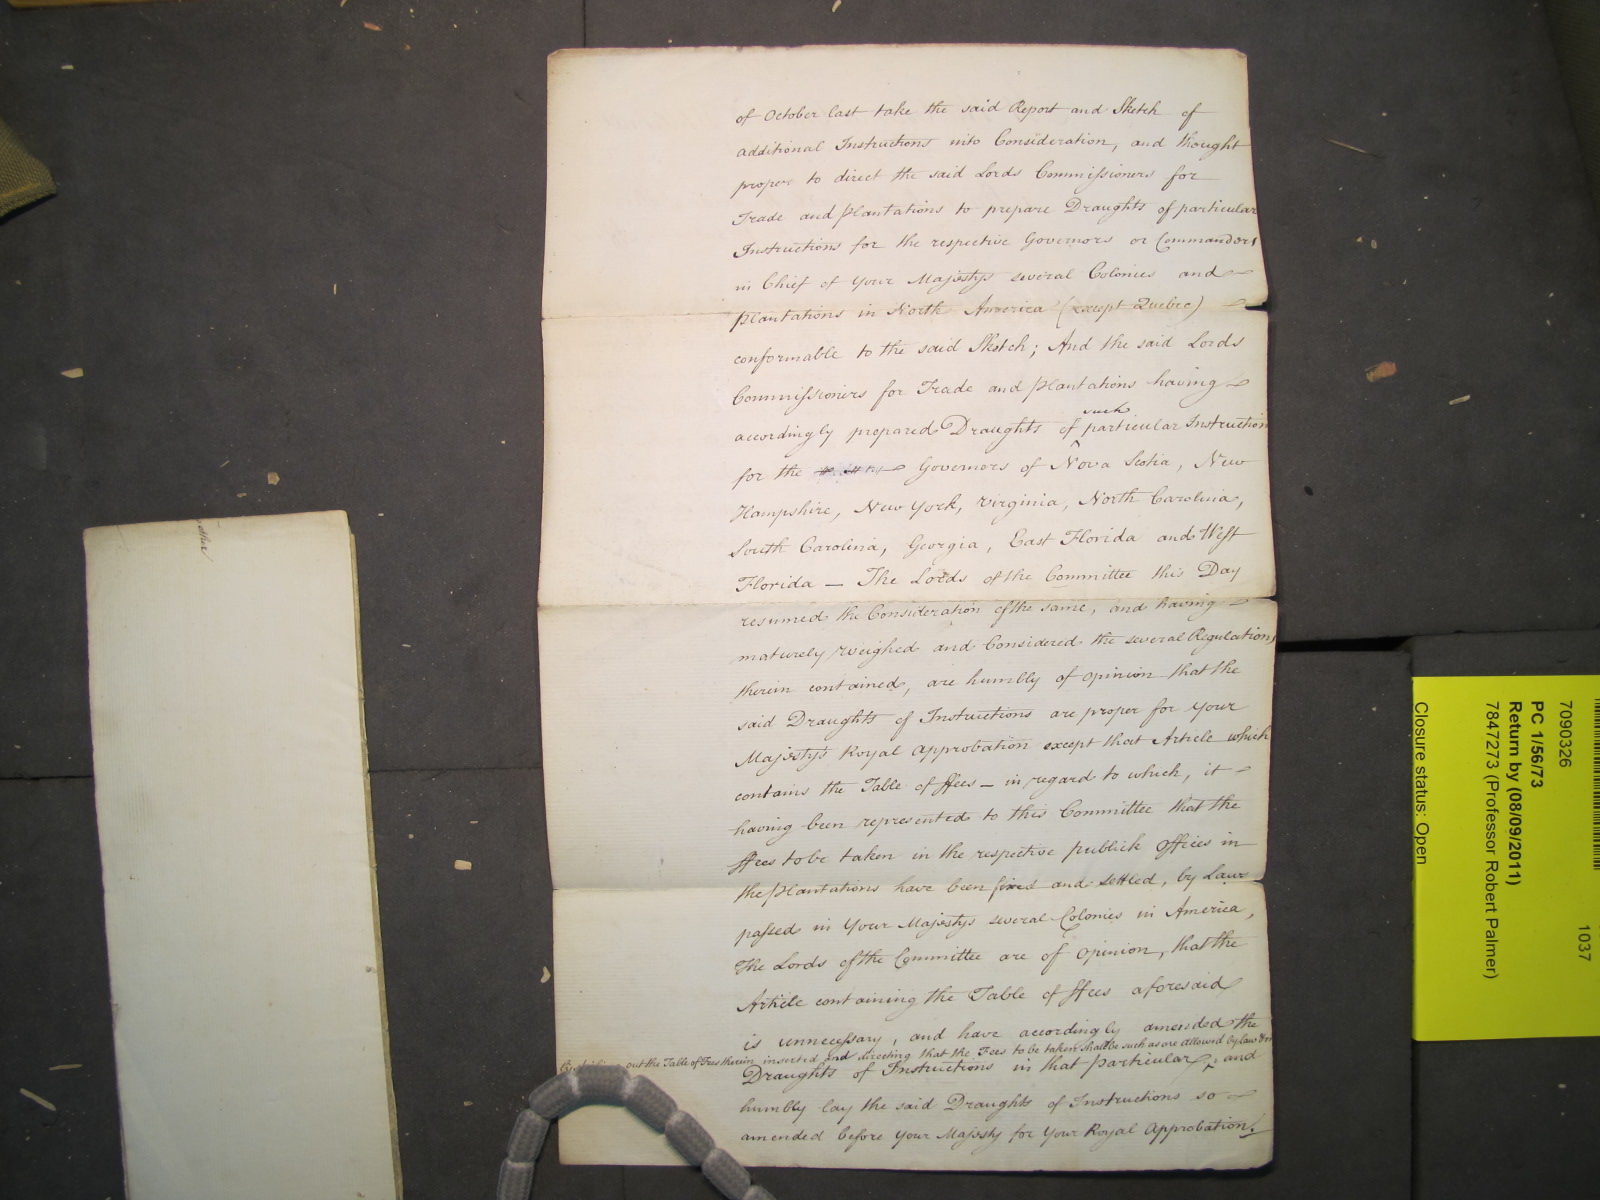 of October last take the said Report and Sketch of
additional Instructions into Consideration, and thought
proper to direct the said Lords Commissioners for
Trade and Plantations to prepare Draughts of particular
Instructions for the respective Governors or Commanders
in Chief of Your Majestys several Colonies and
Plantations in North America (except Quebec)
conformable to the said Sketch; And the said Lords
Commissioners for Trade and Plantations having
such
accordingly prepared Draughts of particular Instruction
for the Governors of Nova Scotia, New
Hampshire, New York, Virginia, North Carolina,
South Carolina, Georgia, East Florida and West
Florida — The Lords of the Committee this Day
resumed the Consideration of the same, and having
maturely weighed and Considered the several Regulations
therein contained, are humbly of opinion that the
said Draughts of Instructions are proper for Your
Majestys Royal approbation except that Article which
contains the Table of ffees — in regard to which, it
having been represented to this Committee that the
ffees to be taken in the respective publick Offices in
the Plantations have been fixed and settled, by Laws
passed in Your Majestys several Colonies in America,
The Lords of the Committee are of opinion, that the
Article containing the Table of ffees aforesaid
is unnecessary, and have accordingly amended the
out the Table of Fees therein inserted and directing that the Fees to be taken shall be such as are allowed by law
Draughts of Instructions in that particular, and
humbly lay the said Draughts of Instructions so
amended before Your Majesty for Your Royal Approbation.
7090326
1037
PC 1/56/73
Return by (08/09/2011)
7847273 (Professor Robert Palmer)
Closure status: Open